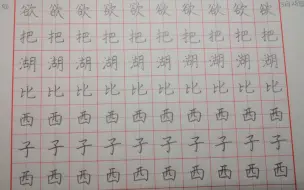 欲 欲 欲 欲 欲 欲 欲 欲 欲 欲
把 把 把 把 把 把 把 把 把 把
湖 湖 湖 湖 湖 湖 湖 湖 湖 湖
比 比 比 比 比 比 比 比 比 比
西 西 西 西 西 西 西 西 西 西
子 子 子 子 子 子 子 子 子 子
西 西 西 西 西 西 西 西 西 西